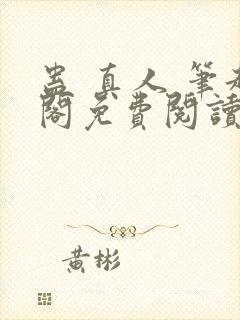 蛊真人 筆
閣免費閱讀
黃彬